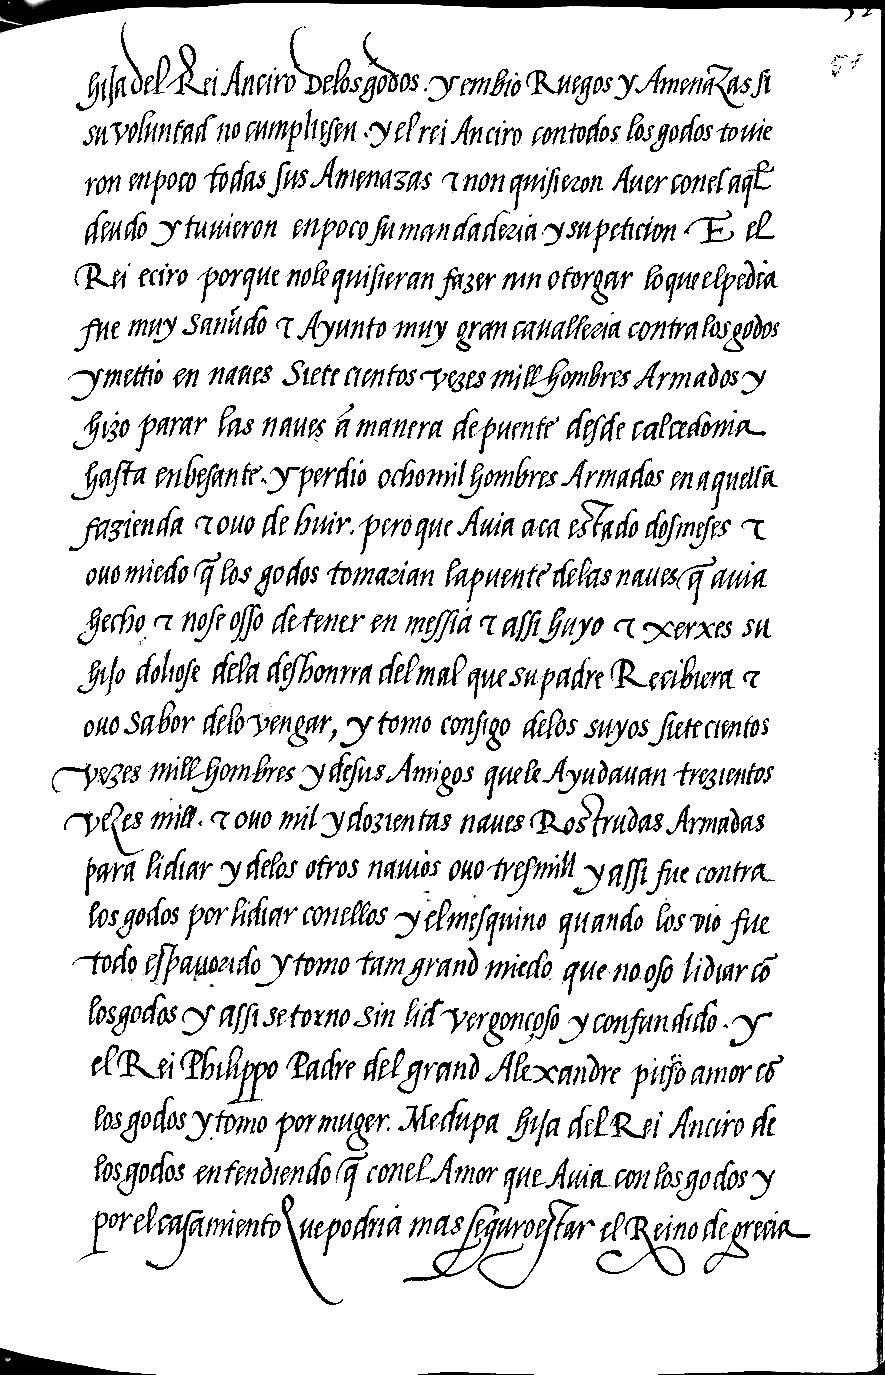 hija del Rei Anciro Delos godos. y embio Ruegos y Amenazas si
su voluntad no cumpliesen. y el rei Anciro con todos los godos tovie
ron en poco todas sus Amenazas τ non quisieron Aver con el aql̃
deudo y tuvieron en poco su mandaderia y su peticion. E el
Rei eciro porque no le quisieran fazer nin otorgar lo que el pedia
fue muy Sanũdo τ Ayunto muy gran cavalleria contra los godos
y mettio en naves Siete cientos vezes mill hombres Armados y
hizo parar las naves á manera de puente desde calcedonia
hasta en besante. y perdio ocho mil hombres Armados en aquella
fazienda τ ovo de huir. pero que Avia aca estado dos meses τ
ovo miedo q̃ los godos tomarian la puente de las naves q̃ avia
hecho τ no se osso detener en messia τ assi huyo τ xerxes su
hijo doliose dela deshonrra del mal que su padre Recibiera τ
ovo Sabor de lo vengar, y tomo consigo delos suyos siete cientos
vezes mill hombres y de sus Amigos que le Ayudavan trezientos
vezes mill. τ ovo mil y dozientas naves Rostrudas Armadas
para lidiar y delos otros navios ovo tres mill y assi fue contra
los godos por lidiar con ellos y el mesquino quando los vio fue
todo espavorido y tomo tam grand miedo que no oso lidiar cõ
los godos y assi se torno sin lid vergonçoso y confundido. y
el Rei Philippo Padre del grand Alexandre puso amor cõ
los godos y tomo por muger. Medupa hija del Rei Anciro de
los godos entendiendo q̃ con el Amor que Avia con los godos y
por el casamiento Que podria mas seguro estar el Reino de grecia